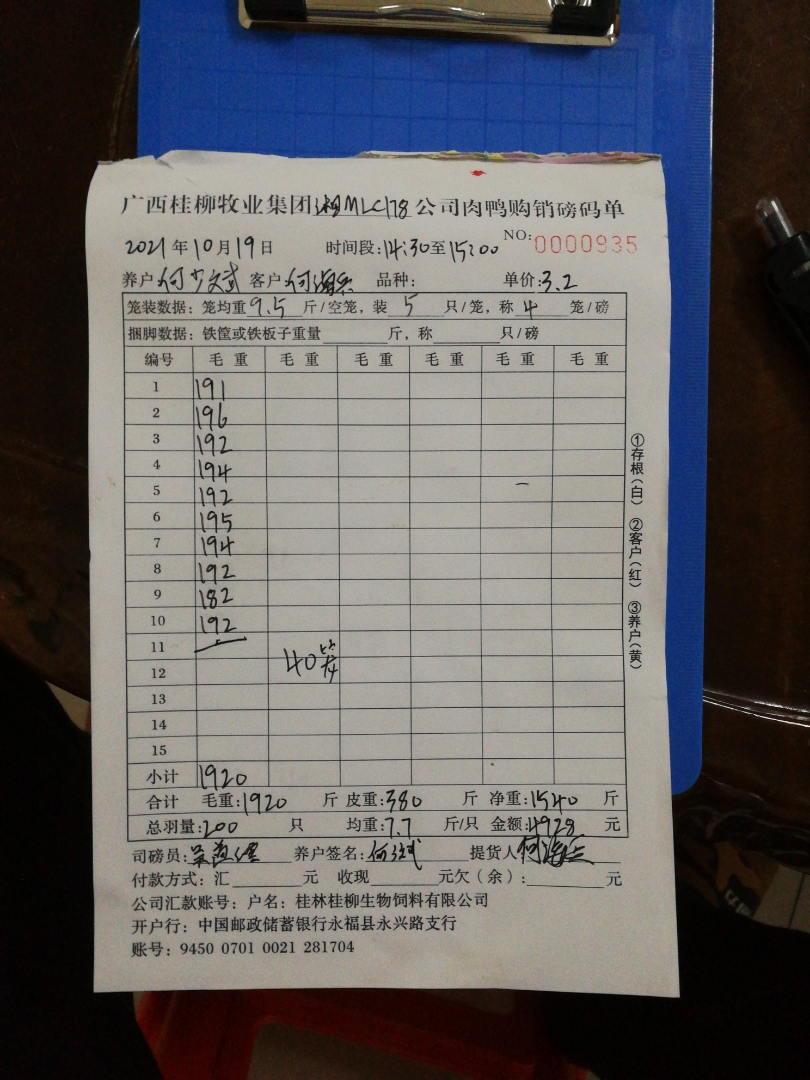 广西桂柳牧业集团湘MLC178公司肉鸭购销磅码单
NO:0000935
2021年10月19日 时间段:14:30至15:00
养户何少斌 客户何海 品种: 单价:3.2
笼装数据:笼均重9.5斤/空笼,装5只/笼,称4笼/磅
捆脚数据:铁筐或铁板子重量 斤,称 只/磅
编号 毛重 毛重 毛重 毛重 毛重 毛重
1 191
2 196
3 192
4 194
5 192
6 195
7 194
8 192
9 182
10 192
11
12 40笼
13
14
15
小计 1920
合计 毛重:1920斤 皮重:380斤 净重:1540斤
总羽量:200只 均重:7.7斤/只 金额:4928元
司磅员: 养户签名:何 提货人何海
付款方式:汇 元 收现 元欠(余): 元
公司汇款账号:户名:桂林桂柳生物饲料有限公司
开户行:中国邮政储蓄银行永福县永兴路支行
账号:9450 0701 0021 281704
①存根(白) ②客户(红) ③养户(黄)